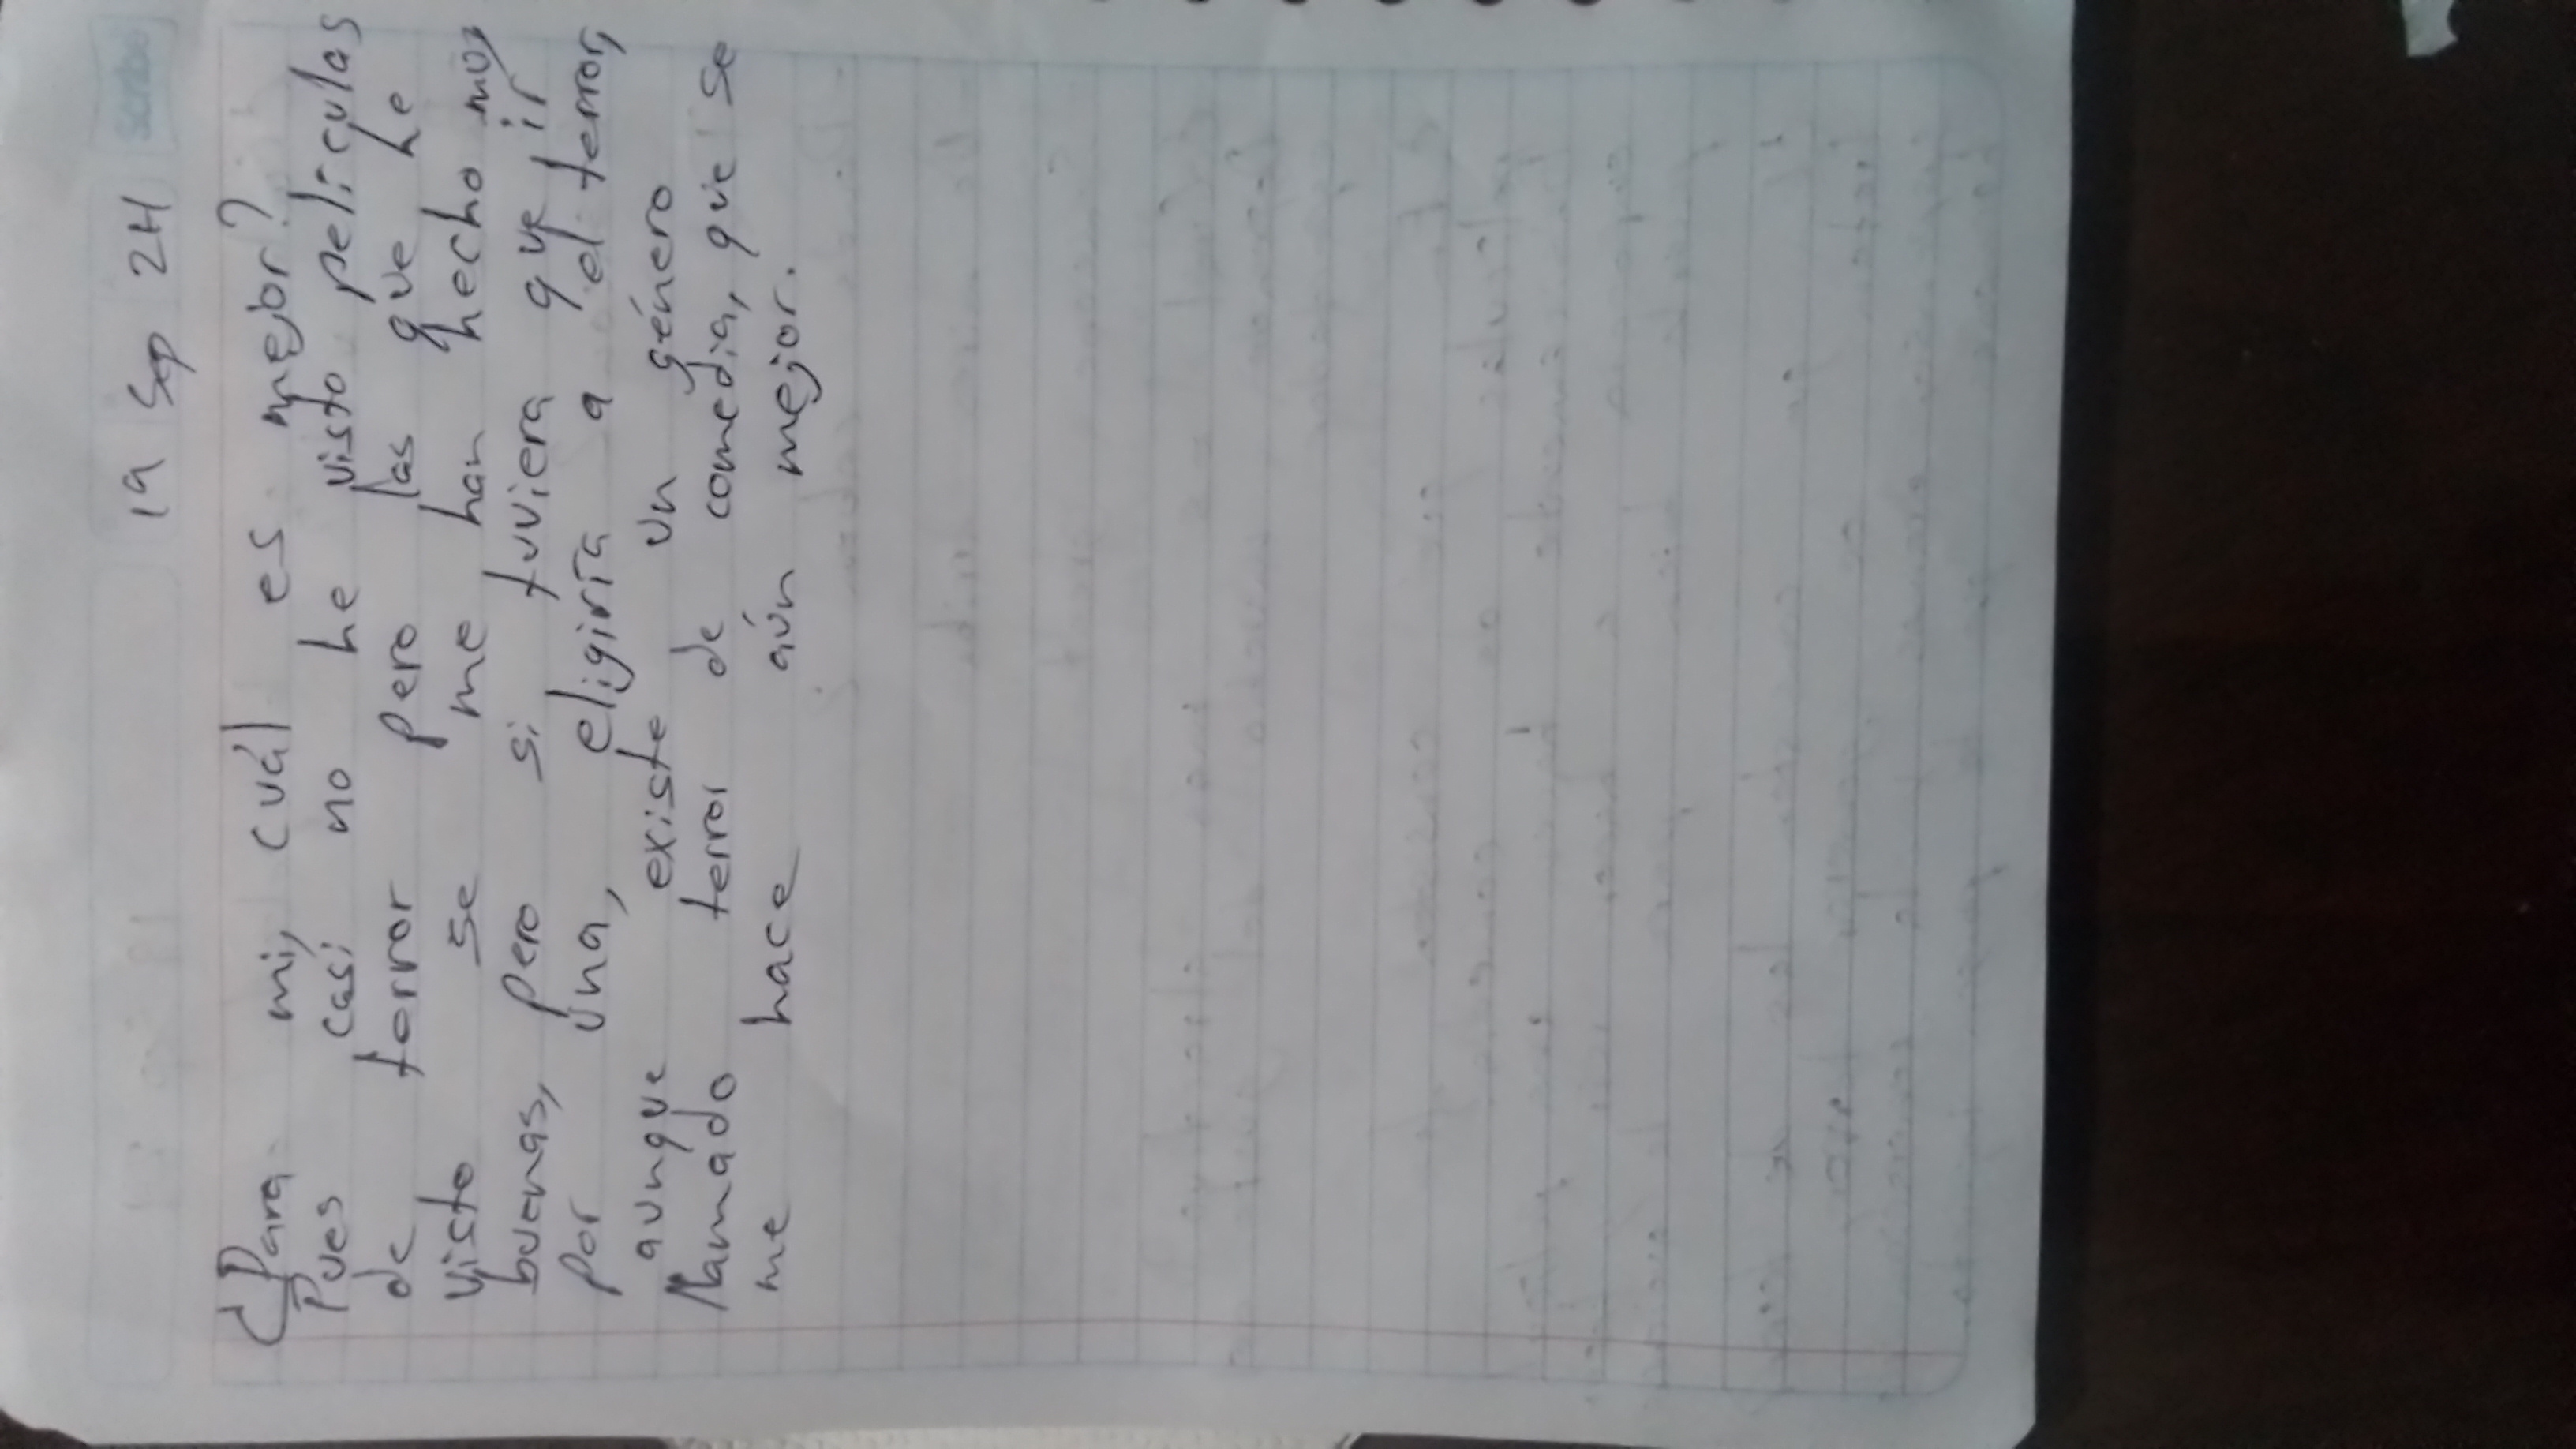 scribe
19 Sep 24
¿Para mi, cuál es mejor?
Pues casi no he visto películas
de terror pero las que he
visto se me han hecho muy
buenas, pero si tuviera que ir
por una, eligiría a el terror,
aunque existe un género
llamado terror de comedia, que se
me hace aún mejor.